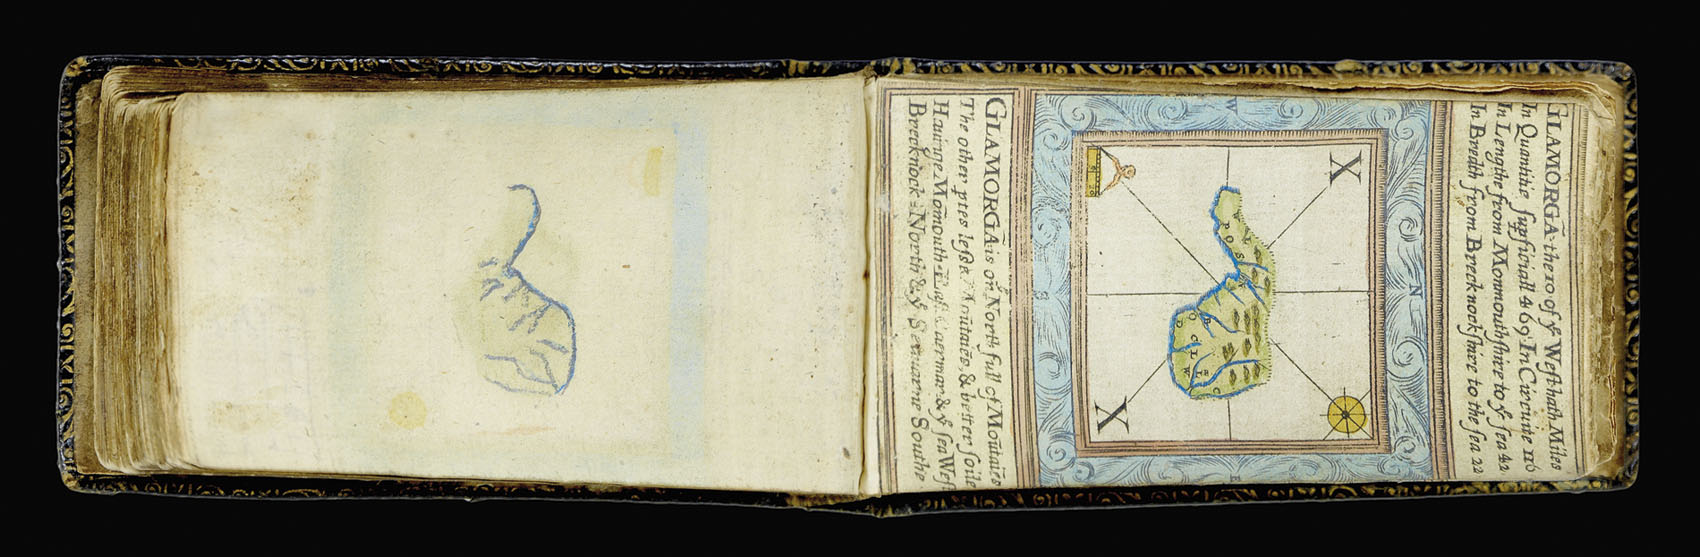 GLAMORGÃ the 10 of yͤ West hath Miles
In Quantitie supficiall 469 In Circuite 116
In Lengthe from Monmouthshire to yͤ sea 42
In Bredth from Brecknockshire to the sea 22
N
X
W
E
X
GLAMORGÃ is oñ North full of Moũtaiẽs
The other ptes lesse Moutaiẽs, & better soile
Hauinge Momouth-East Caermar & yͤ sea West
Brecknock=North & yͤ Seauarne Southe